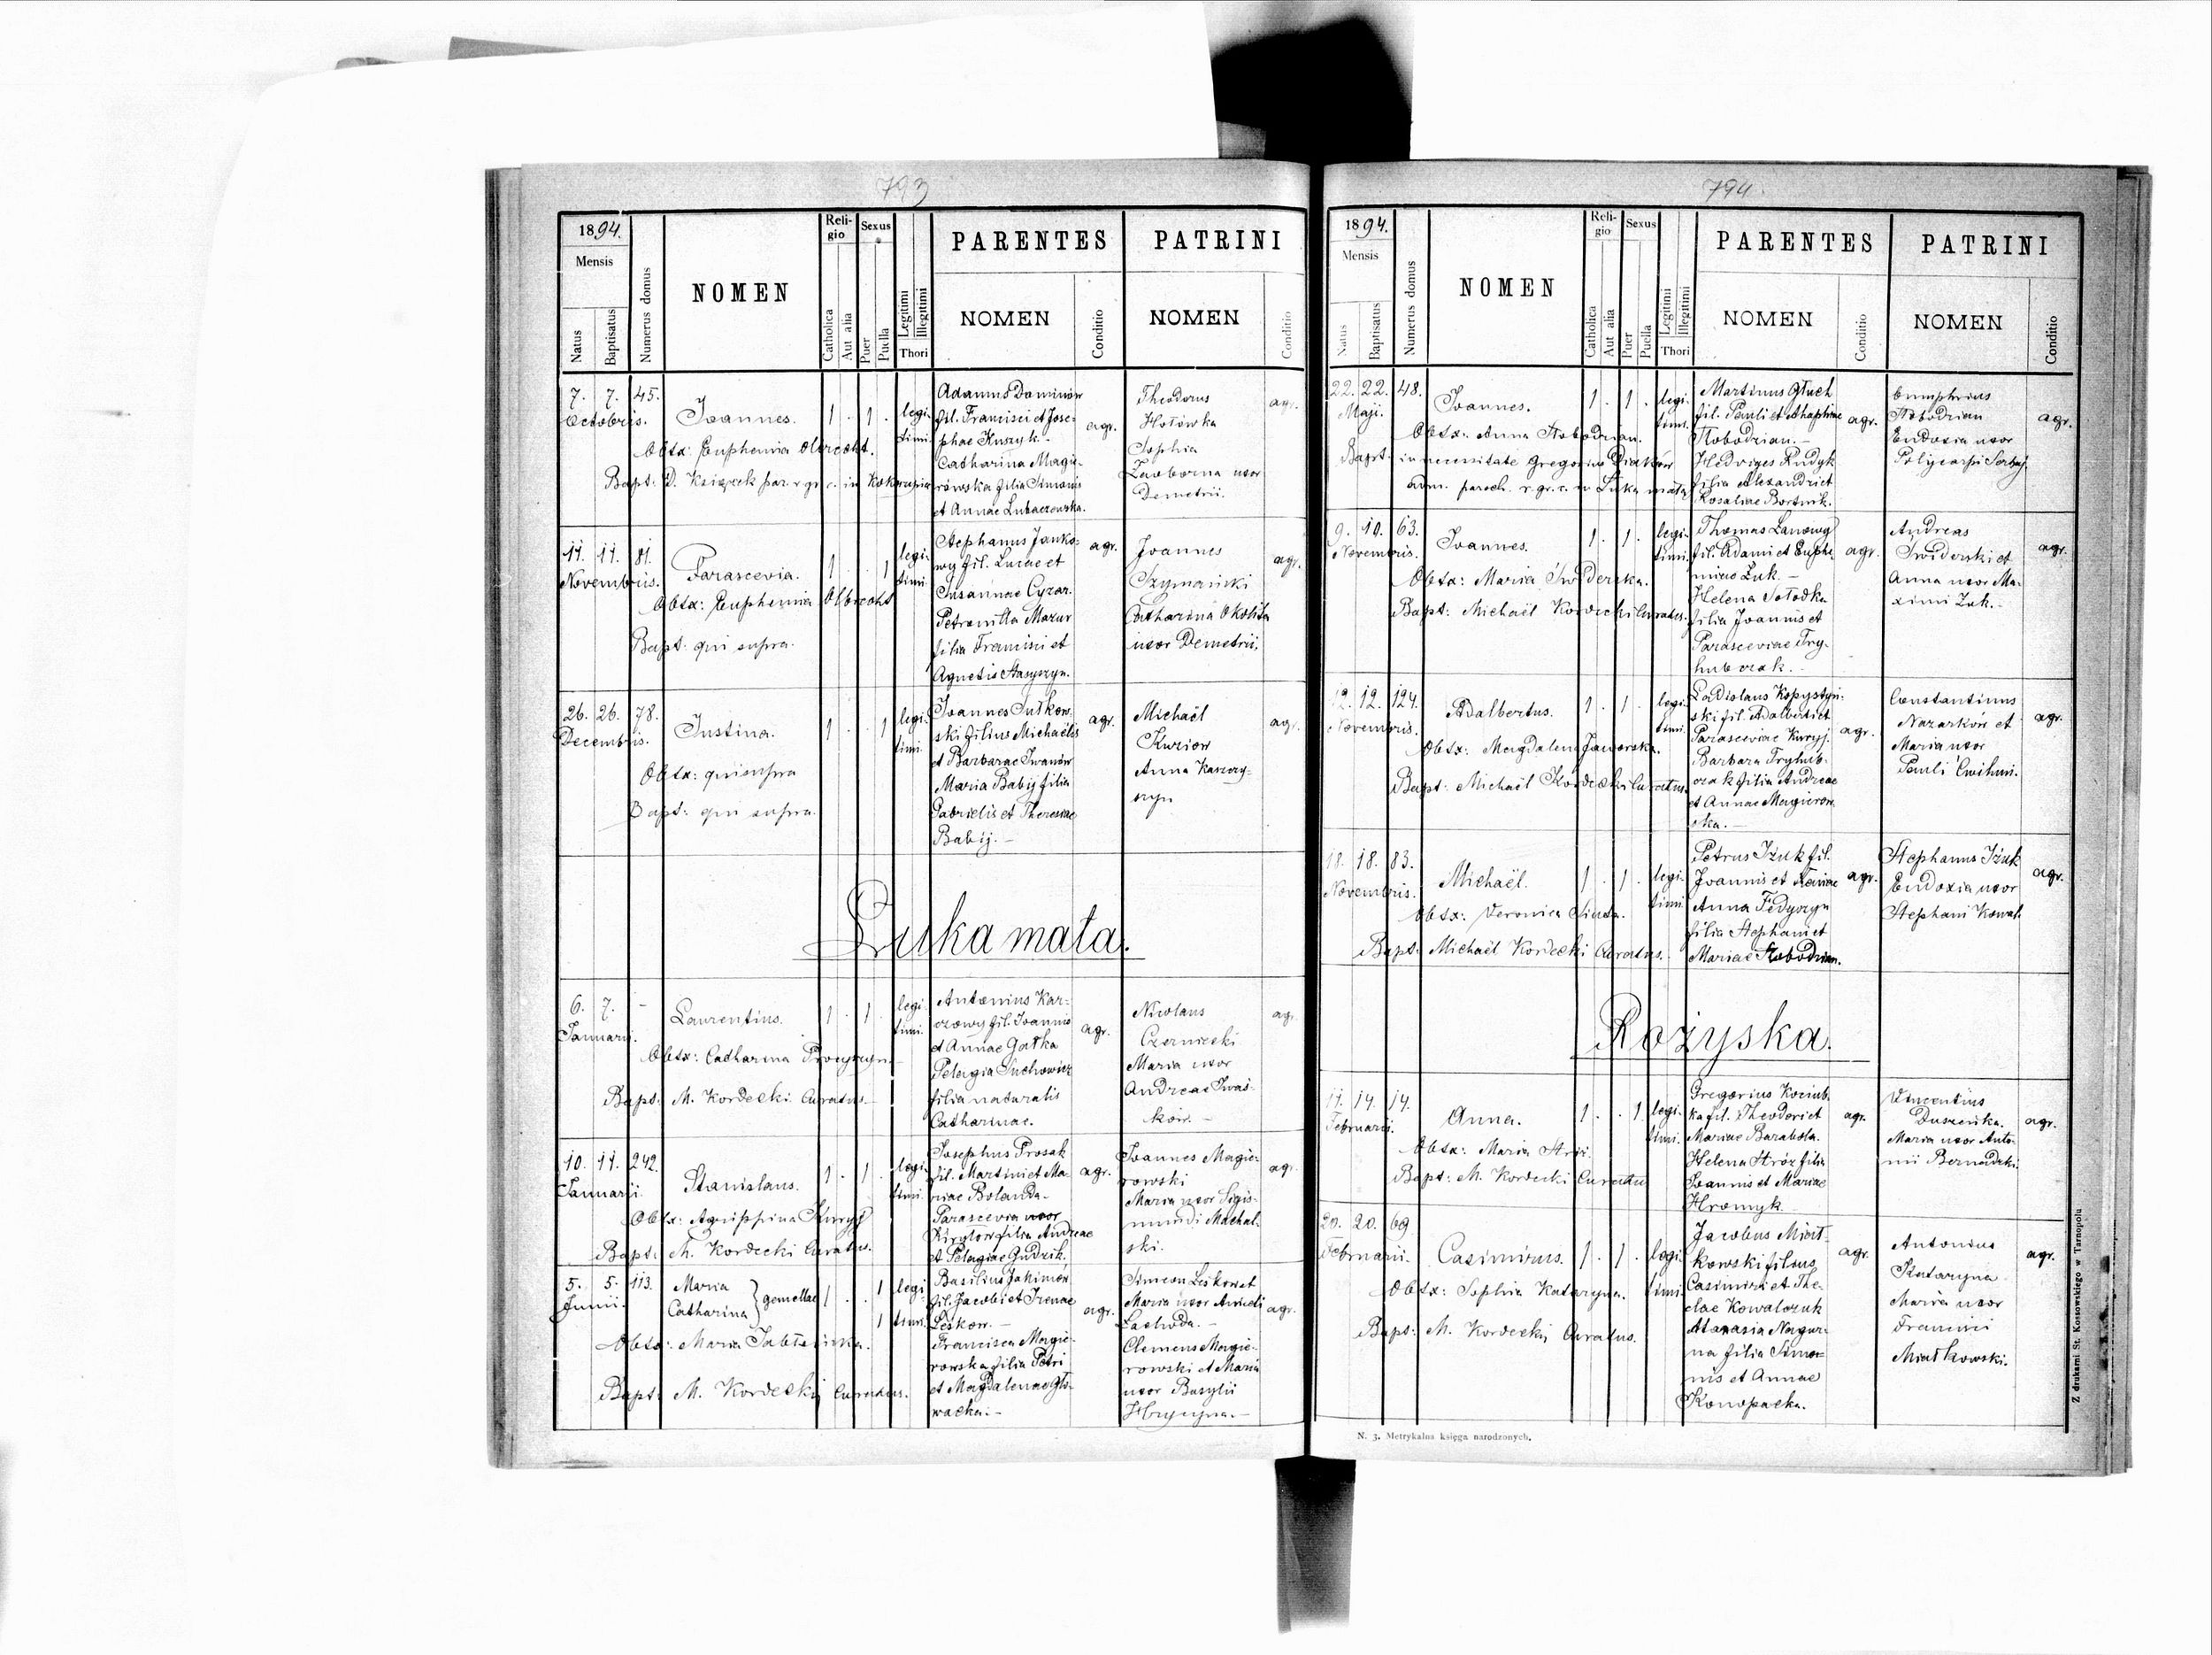 793
1894.
Mensis
Natus
Baptisatus
Numerus domus
NOMEN
Religio
Catholica
Aut alia
Sexus
Puer
Puella
Legitimi
Illegitimi
Thori
PARENTES
NOMEN
Conditio
PATRINI
NOMEN
Conditio
7. 7. 45.
Octobris.
Joannes.
1 . 1 .
legi-
timi.
Obstx: Euphemia Olbrecht.
Bapt: D. Książek par. r. gr. c. in
Adamus Dominów
fil. Francisci et Jose-
phae Kuzyk.-
Catharina Magie-
rowska filia Simonis
et Annae Lubaczowska.
agr.
Theodorus
Hołówka
Sophia
Zaworna uxor
Demetrii.
agr.
11. 11. 81.
Novembris.
Parascevia.
1 . . 1
legi-
timi.
Obstx: Euphemia Olbrecht
Bapt: qui supra.
Stephanus Janko-
wy fil. Lucae et
Susannae Cyzar.
Petronilla Mazur
filia Francisci et
Agnetis Stasyszyn.
agr.
Joannes
Szymański
Catharina Okolita
uxor Demetrii.
agr.
26. 26. 78.
Decembris.
Justina.
1 . . 1
legi-
timi.
Obstx: qui supra
Bapt: qui supra.
Joannes Sutkow-
ski filius Michaëlis
et Barbarae Iwanów
Maria Babij filia
Gabrielis et Theresiae
Babij. -
agr.
Michaël
Kuziow
Anna Kaszczy-
szyn
agr.
Łuka mała.
6. 7. -
Januarii.
Laurentius.
1 . 1 .
legi-
timi.
Obstx: Catharina Procyszyn.
Bapt: M. Kordecki Curatus.
Antonius Kar-
czowy fil. Joannis
et Annae Gałka
Pelagia Suchowicz
filia naturalis
Catharinae.
agr.
Nicolaus
Czerniecki
Maria uxor
Andreae Iwaś-
ków. -
agr.
10. 11. 242.
Januarii.
Stanislaus.
1 . 1 .
legi-
timi.
Obstx: Agrippina Kuryj
Bapt: M. Kordecki Curatus.
Josephus Prosak
fil. Martini et Ma-
riae Bolanda.-
Parascevia uxor
Kiryłow filia Andreae
et Pelagiae Gudzik.
agr.
Joannes Magie-
rowski
Maria uxor Sigis-
mundi Machal-
ski.
agr.
5. 5. 113.
Junii.
Maria
Catharina } gemellae
1 . . 1
1
legi-
timi.
Obstx: Maria Jabłońska.
Bapt: M. Kordecki Curatus.
Basilius Jakimów
fil. Jacobi et Irenae
Leśkow. -
Francisca Magie-
rowska filia Petri
et Magdalenae Gło-
wacka.-
agr.
Simeon Leśkow et
Maria uxor
Lachoda. -
Clemens Magie-
rowski et Maria
uxor Basylii
Hrycyna. -
agr.
794.
1894.
Mensis
Natus
Baptisatus
Numerus domus
NOMEN
Religio
Catholica
Aut alia
Sexus
Puer
Puella
Legitimi
Illegitimi
Thori
PARENTES
NOMEN
Conditio
PATRINI
NOMEN
Conditio
22. 22. 48.
Maji.
Joannes.
1 . 1 .
legi-
timi.
Obstx: Anna Słobodzian.
Bapt. in necessitate Gregorius Diaków
adm. paroch. r. gr. c. in Łuka mała
Martinus Głuch
fil. Pauli et Ahaphiae
Słobodzian. -
Hedviges Rudyk
filia Alexandri et
Rosaliae Bortnik.
agr.
Słobodzian
Eudoxia uxor
Polycarpi Serbaj
agr.
9. 10. 63.
Novembris.
Joannes.
1 . 1 .
legi-
timi.
Obstx: Maria Świderska.
Bapt: Michaël Kordecki Curatus.
Thomas Łanowy
fil. Adami et Euphe-
miae Żuk. -
Helena Sołodka
filia Joannis et
Parasceviae Try-
hubczak. -
agr.
Andreas
Świderski et
Anna uxor Ma-
ximi Żuk. -
agr.
12. 12. 124.
Novembris.
Adalbertus.
1 . 1 .
legi-
timi.
Obstx: Magdalena Jaworska.
Bapt: Michaël Kordecki Curatus.
Ladislaus Kopystyń-
ski fil. Adalberti et
Parasceviae Kuryj.
Barbara Tryhub-
czak filia Andreae
et Annae Magierow-
ska. -
agr.
Constantinus
Nazarków et
Maria uxor
Pauli Cwihun.
agr.
18. 18. 83.
Novembris.
Michaël.
1 . 1 .
legi-
timi.
Obstx: Veronica
Bapt: Michaël Kordecki Curatus.
Petrus Iżuk fil.
Joannis et Xeniae
Anna Fedyszyn
filia Stephani et
Mariae Słobodzian.
agr.
Stephanus Iżuk
Eudoxia uxor
Stephani Kowal.
agr.
Rożyska.
14. 14. 14.
Februarii.
Anna.
1 . . 1
legi-
timi.
Obstx: Maria Stróż.
Bapt: M. Kordecki Curatus
Gregorius Kociub-
ka fil. Theodori et
Mariae Barabola.
Helena Stróż filia
Joannis et Mariae
Hromyk.
agr.
Vincentius
Duszeńka.
Maria uxor Anto-
nii Bernadzki.
agr.
20. 20. 69
Februarii.
Casimirus.
1 . 1 .
legi-
timi.
Obstx: Sophia Kataryna.
Bapt: M. Kordecki Curatus.
Jacobus Miat-
kowski filius
Casimiri et The-
clae Kowalczuk
Atanasia Nagur-
na filia Simo-
nis et Annae
Konopacka.
agr.
Antonius
Kataryna
Maria uxor
Francisci
Miatkowski.
agr.
N. 3. Metrykalna księga narodzonych.
Z drukarni St. Kossowskiego w Tarnopolu